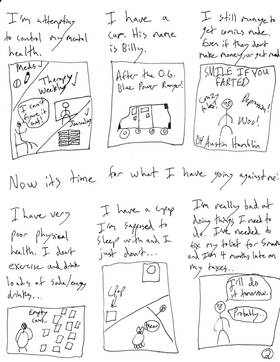 I'm attempting
to control my mental
health.
Meds ✓
Therapy
Weekly ✓
I can't
figure
it
out!
Journaling
I have a
car. His name
is Billy.
After the O.G.
Blue Power Ranger!
I still manage to
get comics made.
Even if they don't
make money, or get read
SMILE IF YOU
FARTED
Crazy
Topics!
Passion!
Woo!
By Austin Hamblin
Now it's time for what I have going against me:
I have very
poor physical
health. I don't
exercise and drink
loads of soda/energy
drinks...
Empty
Cans
I have a cpap
I'm supposed to
sleep with and I
just don't...
CPAP
Naw
I'm really bad at
doing things I need to
do. I've needed to
fix my toilet for 5 months
and I'm 4 months late on
my taxes...
I'll do
it tomorrow!
Probably...
2